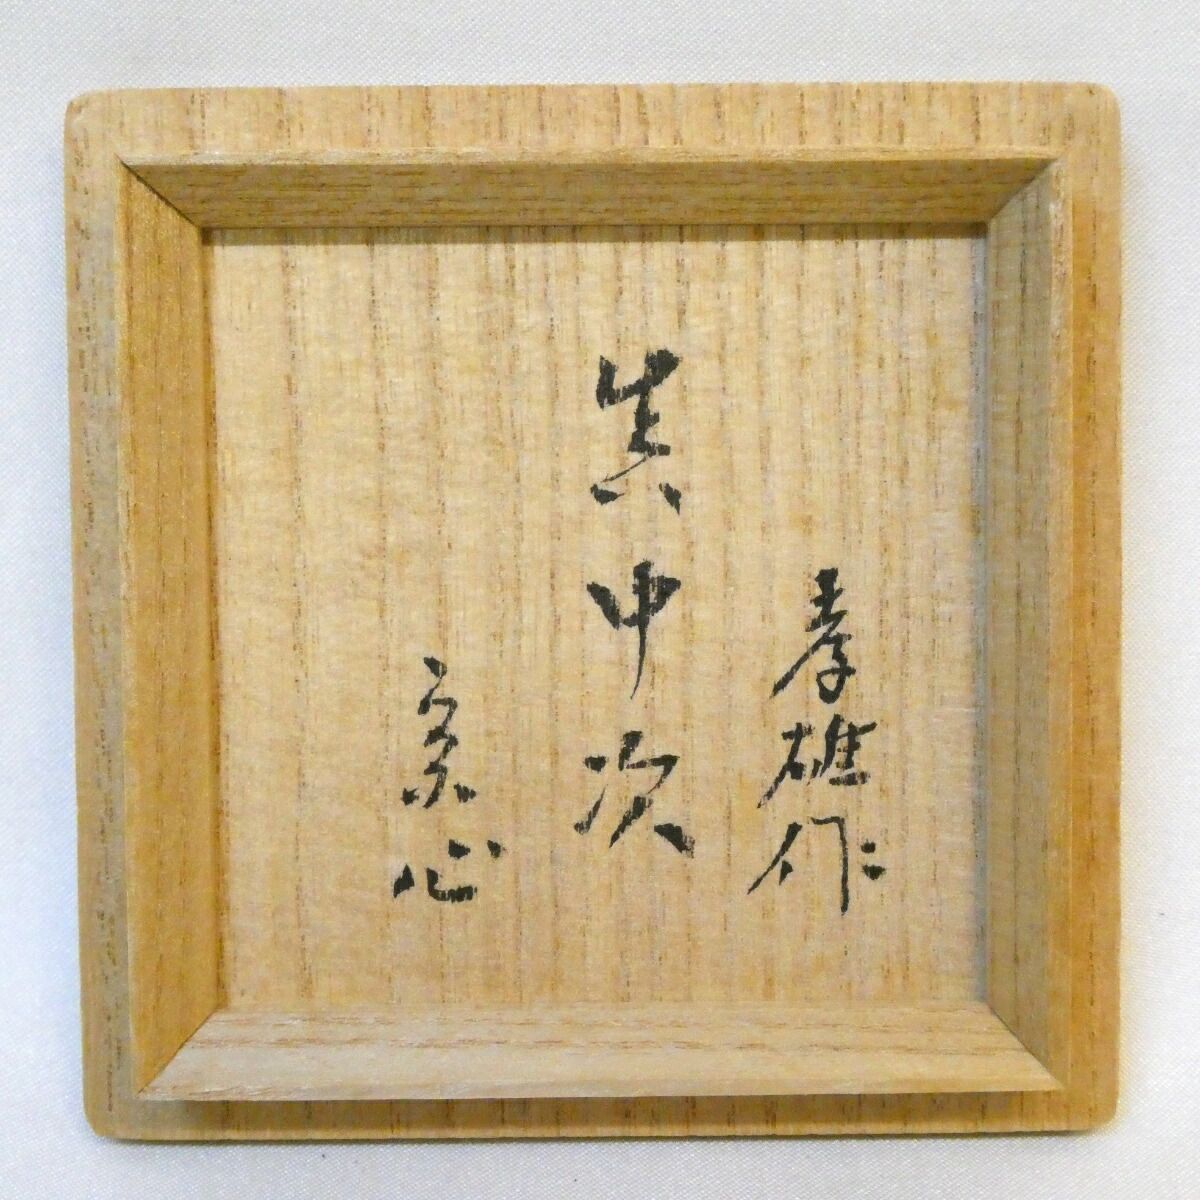 孝雄作
真中次
宗心